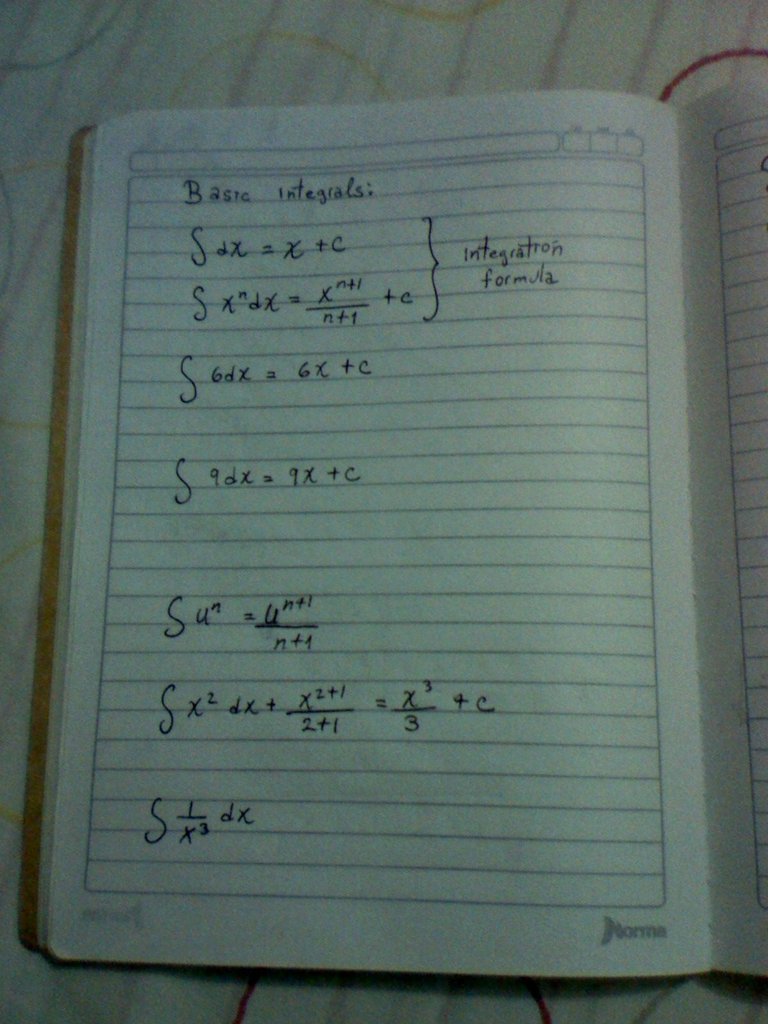 Basic integrals:
∫ dx = x + c
∫ xⁿdx = xⁿ⁺¹/n+1 + c
integration
formula
∫ 6dx = 6x + c
∫ 9dx = 9x + c
∫ uⁿ = uⁿ⁺¹/n+1
∫ x² dx + x²⁺¹/2+1 = x³/3 + c
∫ 1/x³ dx
Norma